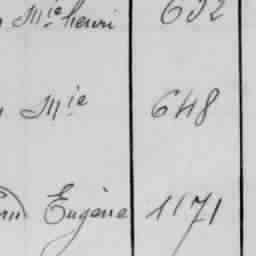 Mie henri 632
Mie 648
Eugène 1171